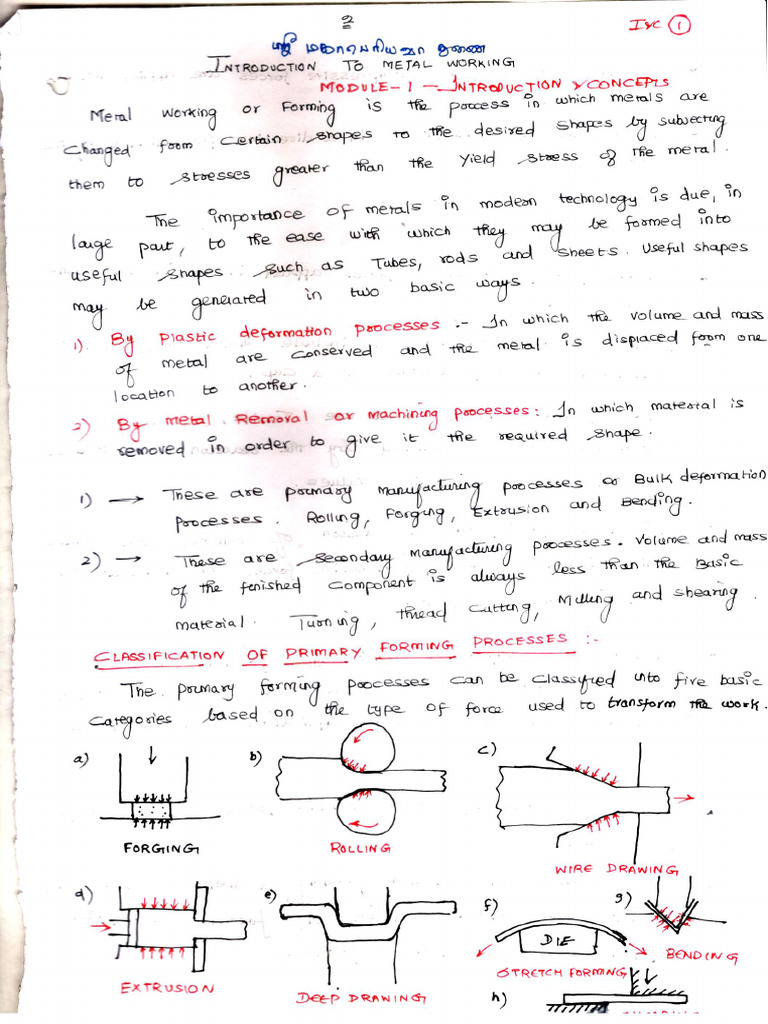 2
I &C 1
ஸ்ரீ மஹாபெரியவா துணை
INTRODUCTION TO METAL WORKING
MODULE-1 - INTRODUCTION & CONCEPTS
Metal working or Forming is the process in which metals are
changed from certain shapes to the desired shapes by subjecting
them to stresses greater than the yield stress of the metal.
The importance of metals in modern technology is due, in
large part, to the ease with which they may be formed into
useful shapes such as Tubes, rods and sheets. Useful shapes
may be generated in two basic ways.
1) By Plastic deformation processes :- In which the volume and mass
of metal are conserved and the metal is displaced from one
location to another.
2) By metal Removal or Machining processes: In which material is
removed in order to give it the required shape.
1) → These are primary manufacturing processes or Bulk deformation
processes. Rolling, Forging, Extrusion and Bending.
2) → These are secondary manufacturing processes. Volume and mass
of the finished component is always less than the Basic
material. Turning, thread Cutting, Milling and shearing.
CLASSIFICATION OF PRIMARY FORMING PROCESSES :-
The primary forming processes can be classified into five basic
categories based on the type of force used to transform the work.
a) b) c)
FORGING
ROLLING
WIRE DRAWING
d) e) f) g)
DIE
BENDING
EXTRUSION
DEEP DRAWING
STRETCH FORMING
h)